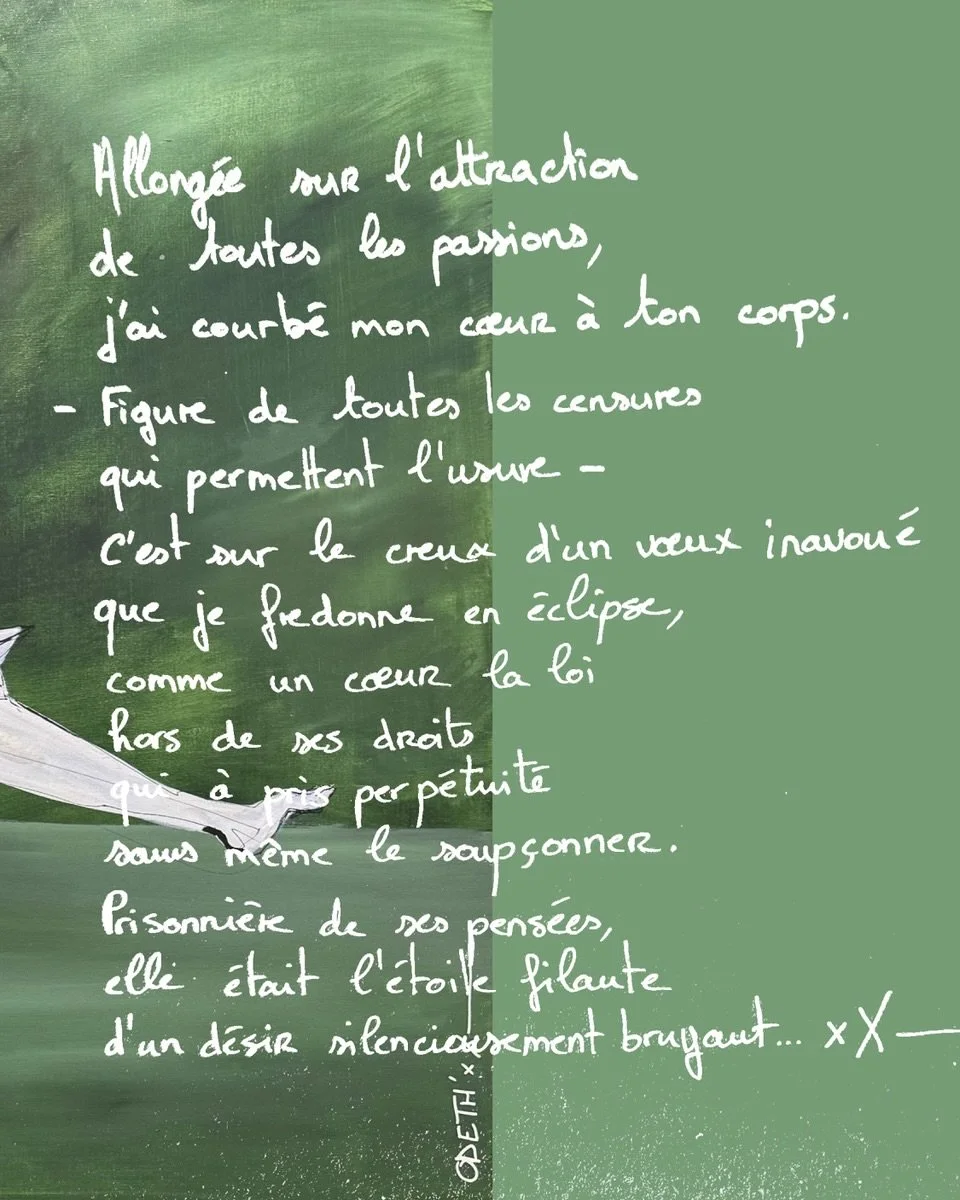 Allongée sur l'attraction
de toutes les passions,
j'ai courbé mon cœur à ton corps.
- Figure de toutes les censures
qui permettent l'usure -
C'est sur le creux d'un vœux inavoué
que je fredonne en éclipse,
comme un cœur la loi
hors de ses droits
qui à pris perpétuité
sans même le soupçonner.
Prisonnière de ses pensées,
elle était l'étoile filante
d'un désir silencieusement bruyant... xX—
ODETH'x